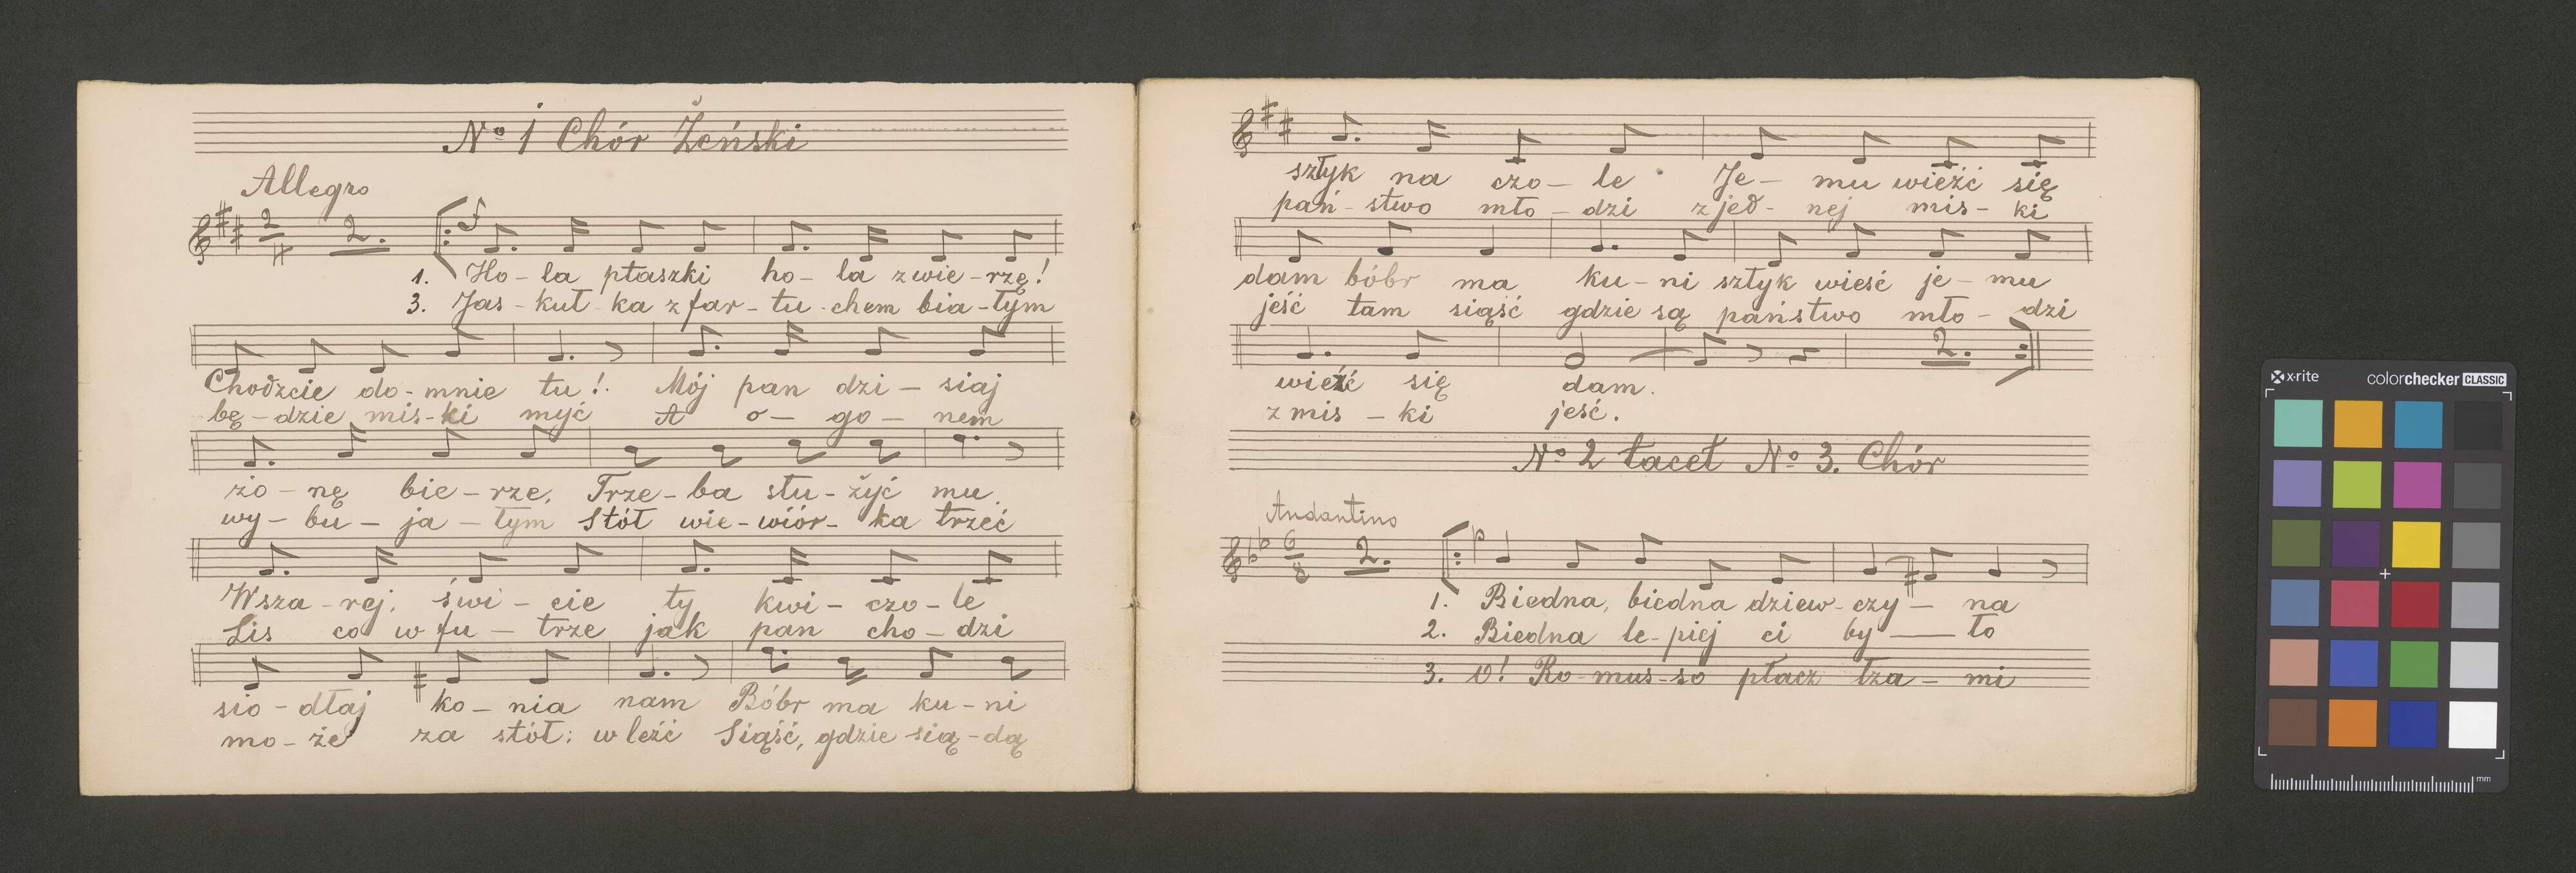 No 1 Chór Żeński
Allegro
2
1. Ho-la ptaszki ho-la zwie-rzę!
3. Jas-kuł-ka z far-tu-chem bia-łym
Chodzcie do-mnie tu! Mój pan dzi-siaj
bę-dzie mis-ki myć A o-go-nem
żo-nę bie-rze, Trze-ba słu-żyć mu.
wy-bu-ja-łym Stół wie-wiór-ka trzeć
Wsza-rej, świ-cie ty kwi-czo-le
Lis co w fu-trze jak pan cho-dzi
sio-dłaj ko-nia nam Bóbr ma ku-ni
mo-że za stół; wleźć Siąść, gdzie sią-dą
sztyk na czo-le Je-mu wieźć się
pań-stwo mło-dzi z jed-nej mis-ki
dam bóbr ma ku-ni sztyk wieść je-mu
jeść tam siąść gdzie są państwo mło-dzi
wieźć się dam.
z mis-ki jeść.
2.
No 2 tacet No 3. Chór
Andantino
6
8 2. p
1. Biedna, biedna dziew-czy-na
2. Biedna le-piej ci by-ło
3. O! Ro-mus-so płacz łza-mi
x-rite colorchecker CLASSIC
mm